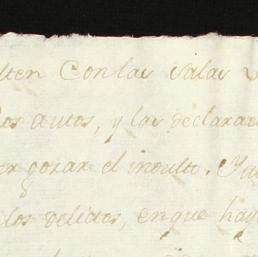 lten Con las Salas
los autos, y las declara
er gozar el indulto. Ya
los delictos, en que hay